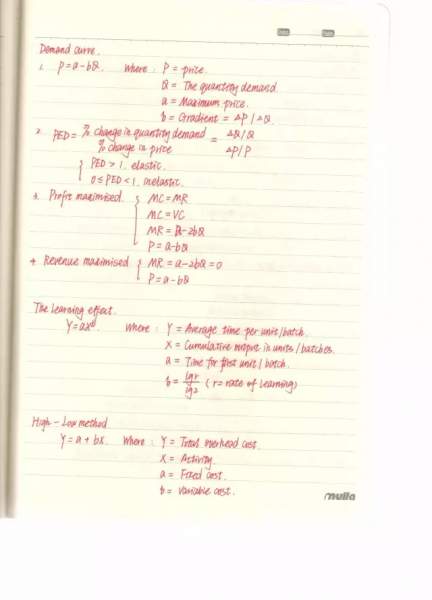 Demand curve.
1. P=a-bQ. Where: P = price.
Q = The quantity demand.
a = Maximum price.
b = Gradient = ΔP/ΔQ.
2. PED = % change in quantity demand / % change in price = ΔQ/Q / ΔP/P
PED > 1. elastic.
0 ≤ PED < 1. inelastic.
3. Profit maximised. MC = MR
MC = VC
MR = a-2bQ
P = a-bQ
4. Revenue maximised MR = a-2bQ = 0
P = a-bQ
The learning effect.
Y=ax^b. Where: Y = Average time per unit/batch.
X = Cumulative output in units/batches.
a = Time for first unit/batch.
b = lgr/lg2 (r = rate of learning)
High-Low method
Y = a + bx. Where: Y = Total overhead cost.
X = Activity.
a = Fixed cost.
b = Variable cost.